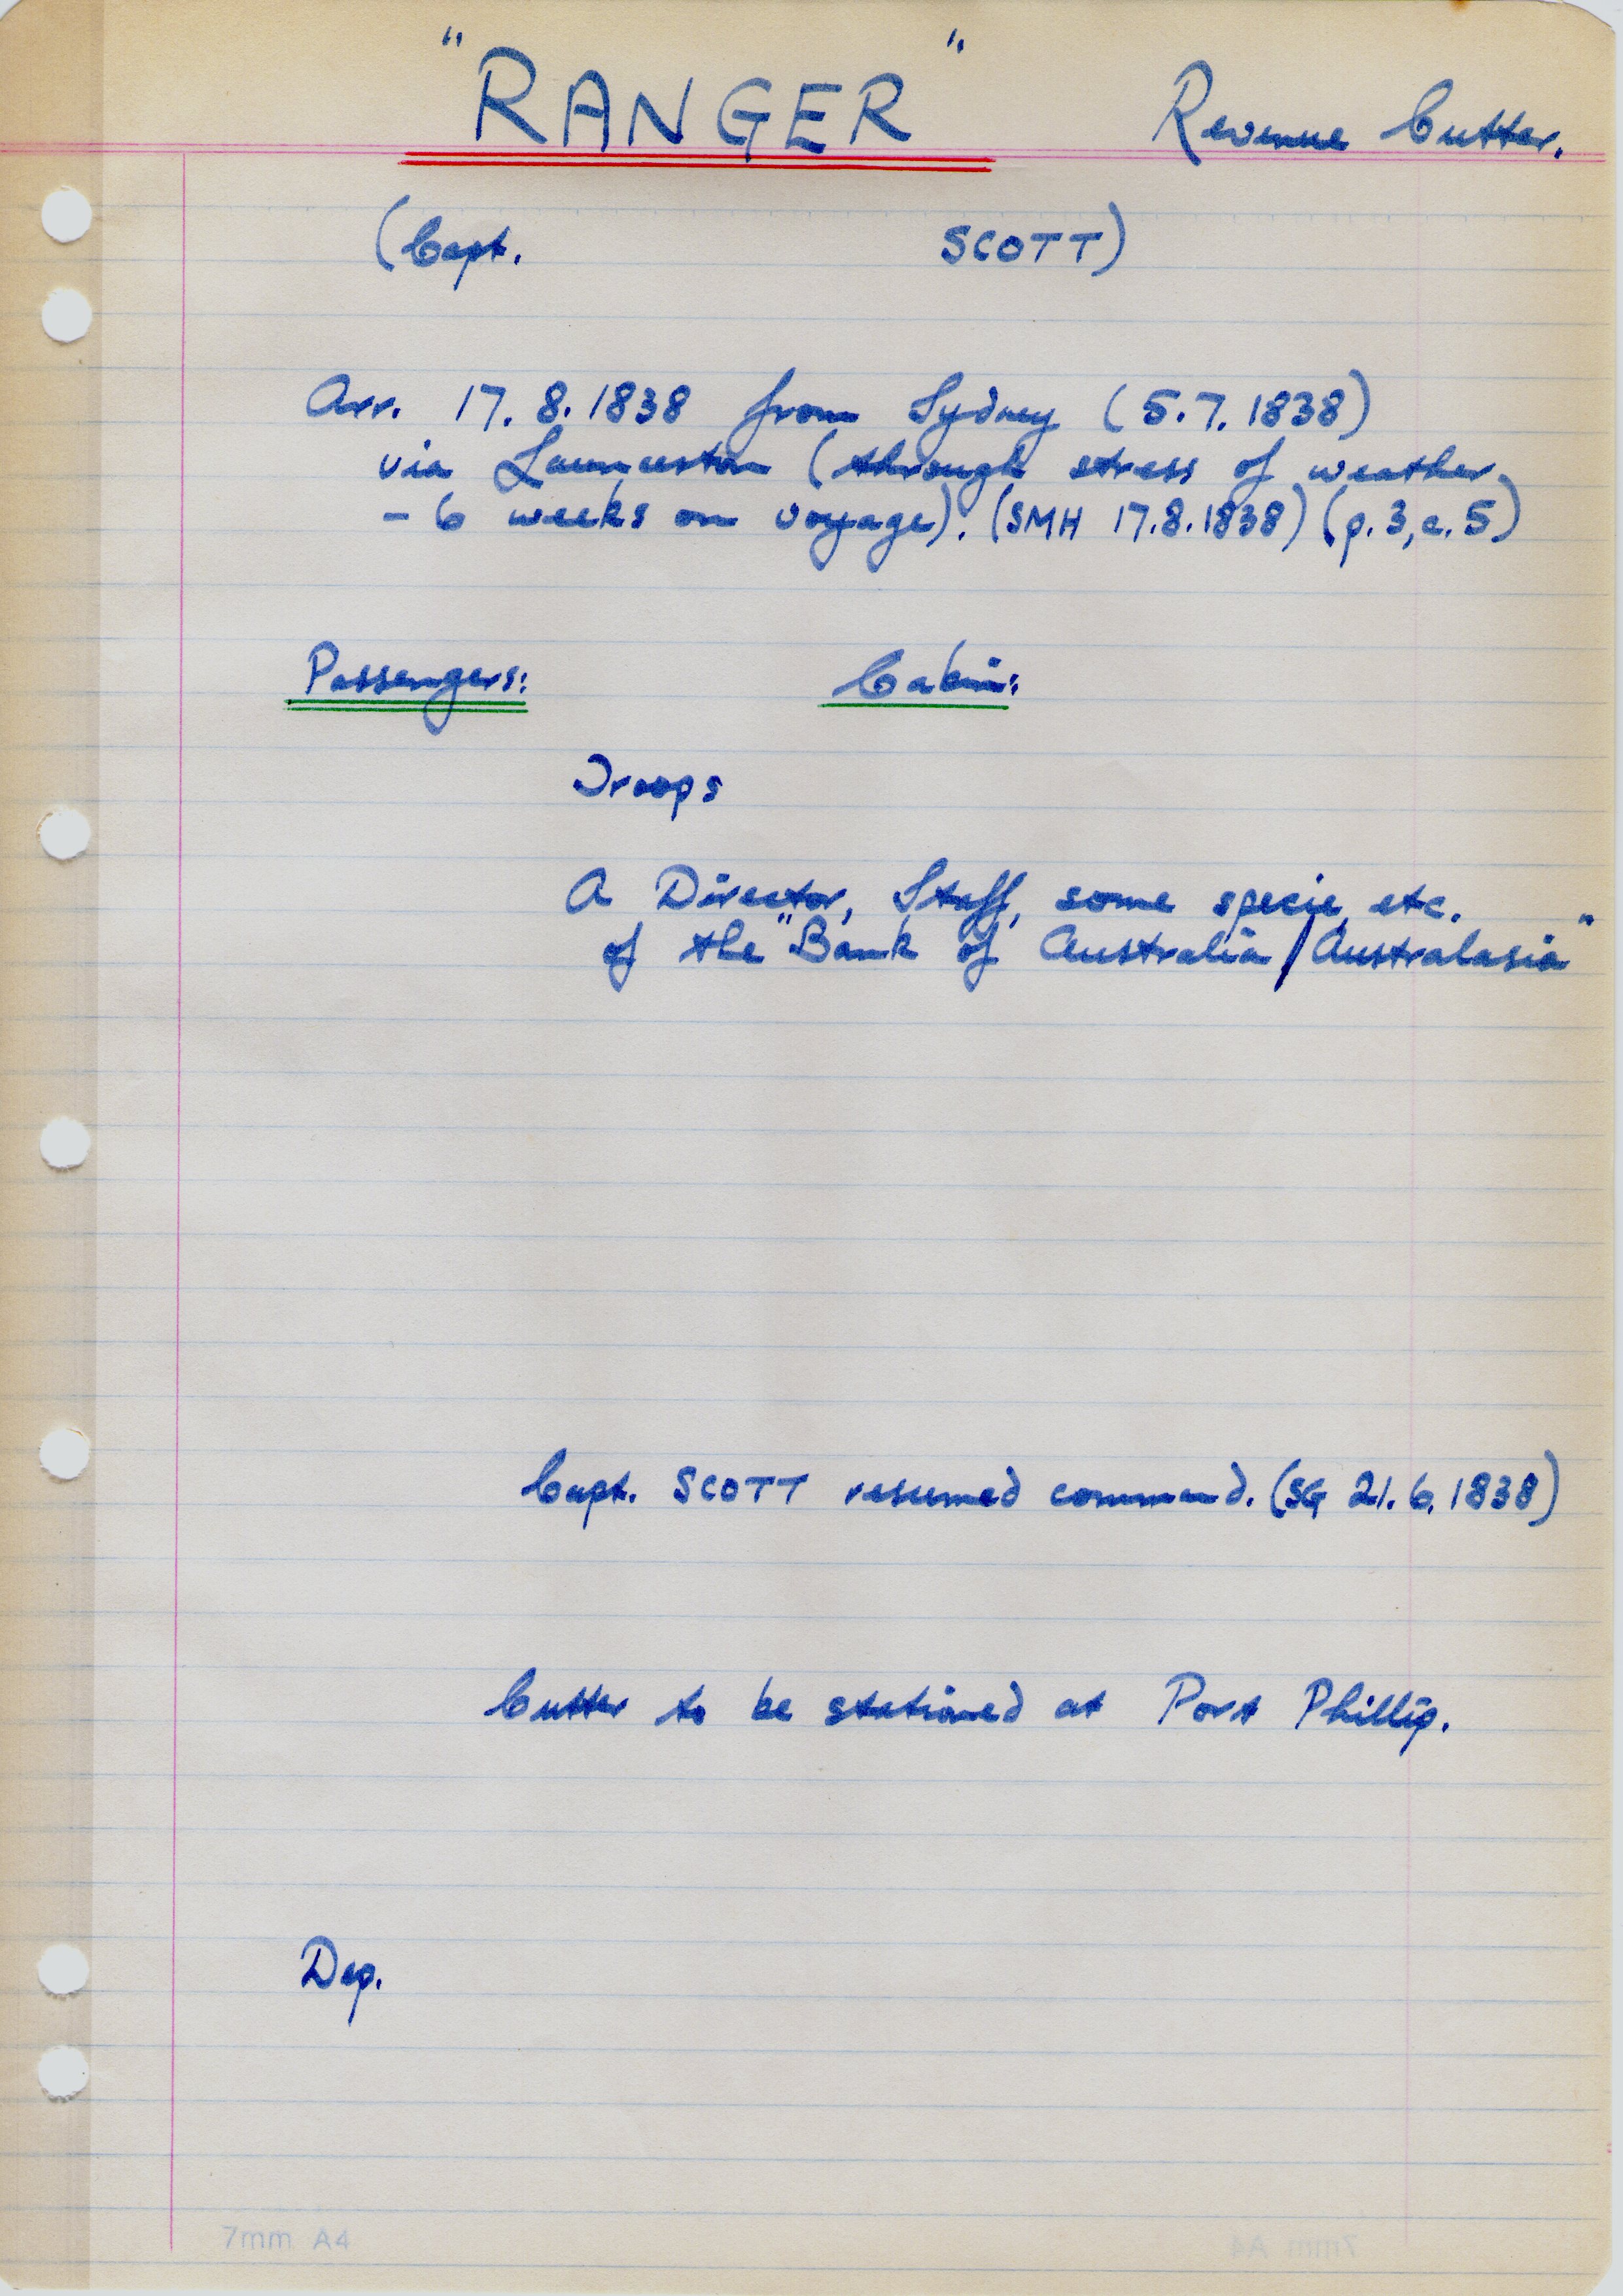 "RANGER" Revenue Cutter.
(Capt. SCOTT)
Arr. 17.8.1838 from Sydney (5.7.1838)
via Launceston (through stress of weather
- 6 weeks on voyage). (SMH 17.8.1838) (p.3, c.5)
Passengers: Cabin:
Troops
A Director, Staff, some specie, etc.
of the "Bank of Australia/Australasia"
Capt. SCOTT resumed command. (SG 21.6.1838)
Cutter to be stationed at Port Phillip.
Dep.
7mm A4